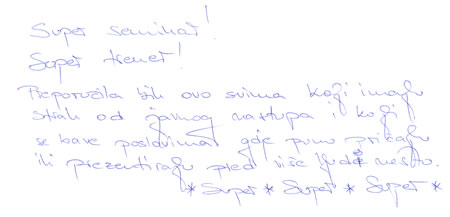 Super seminar!
Super trener!
Preporučila bih ovo svima koji imaju
strah od javnog nastupa i koji
se bave poslovima gdje puno pričaju
ili prezentiraju pred više ljudi nešto.
* Super * Super * Super *